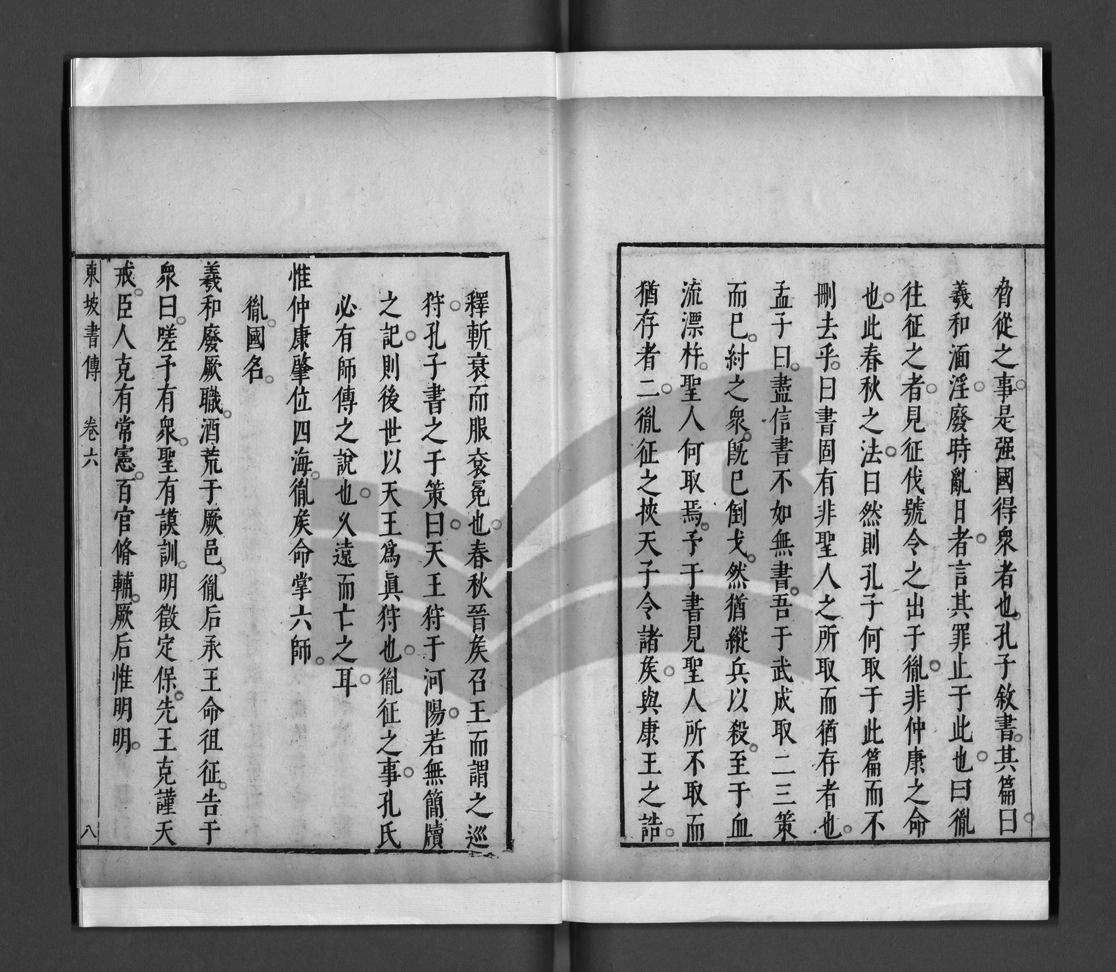 脅從之事是强國得衆者也孔子敘書其篇曰
羲和湎淫廢時亂日者言其罪止于此也曰𦙍
往征之者見征伐號令之出于𦙍非仲康之命
也此春秋之法曰然則孔子何取于此篇而不
刪去乎曰書固有非聖人之所取而猶存者也
孟子曰盡信書不如無書吾于武成取二三策
而巳紂之衆旣巳倒戈然猶縱兵以殺至于血
流漂杵聖人何取焉予于書見聖人所不取而
猶存者二𦙍征之挾天子令諸矦與康王之誥
釋斬衰而服衮冕也春秋晉矦召王而謂之巡
狩孔子書之于策曰天王狩于河陽若無簡牘
之記則後世以天王爲眞狩也𦙍征之事孔氏
必有師傳之說也久遠而亡之耳
惟仲康肇位四海𦙍矦命掌六師
𦙍國名
羲和廢厥職酒荒于厥邑𦙍后承王命徂征告于
衆曰嗟予有衆聖有謨訓明徵定保先王克謹天
戒臣人克有常憲百官脩輔厥后惟明明
東坡書傳 卷六 八